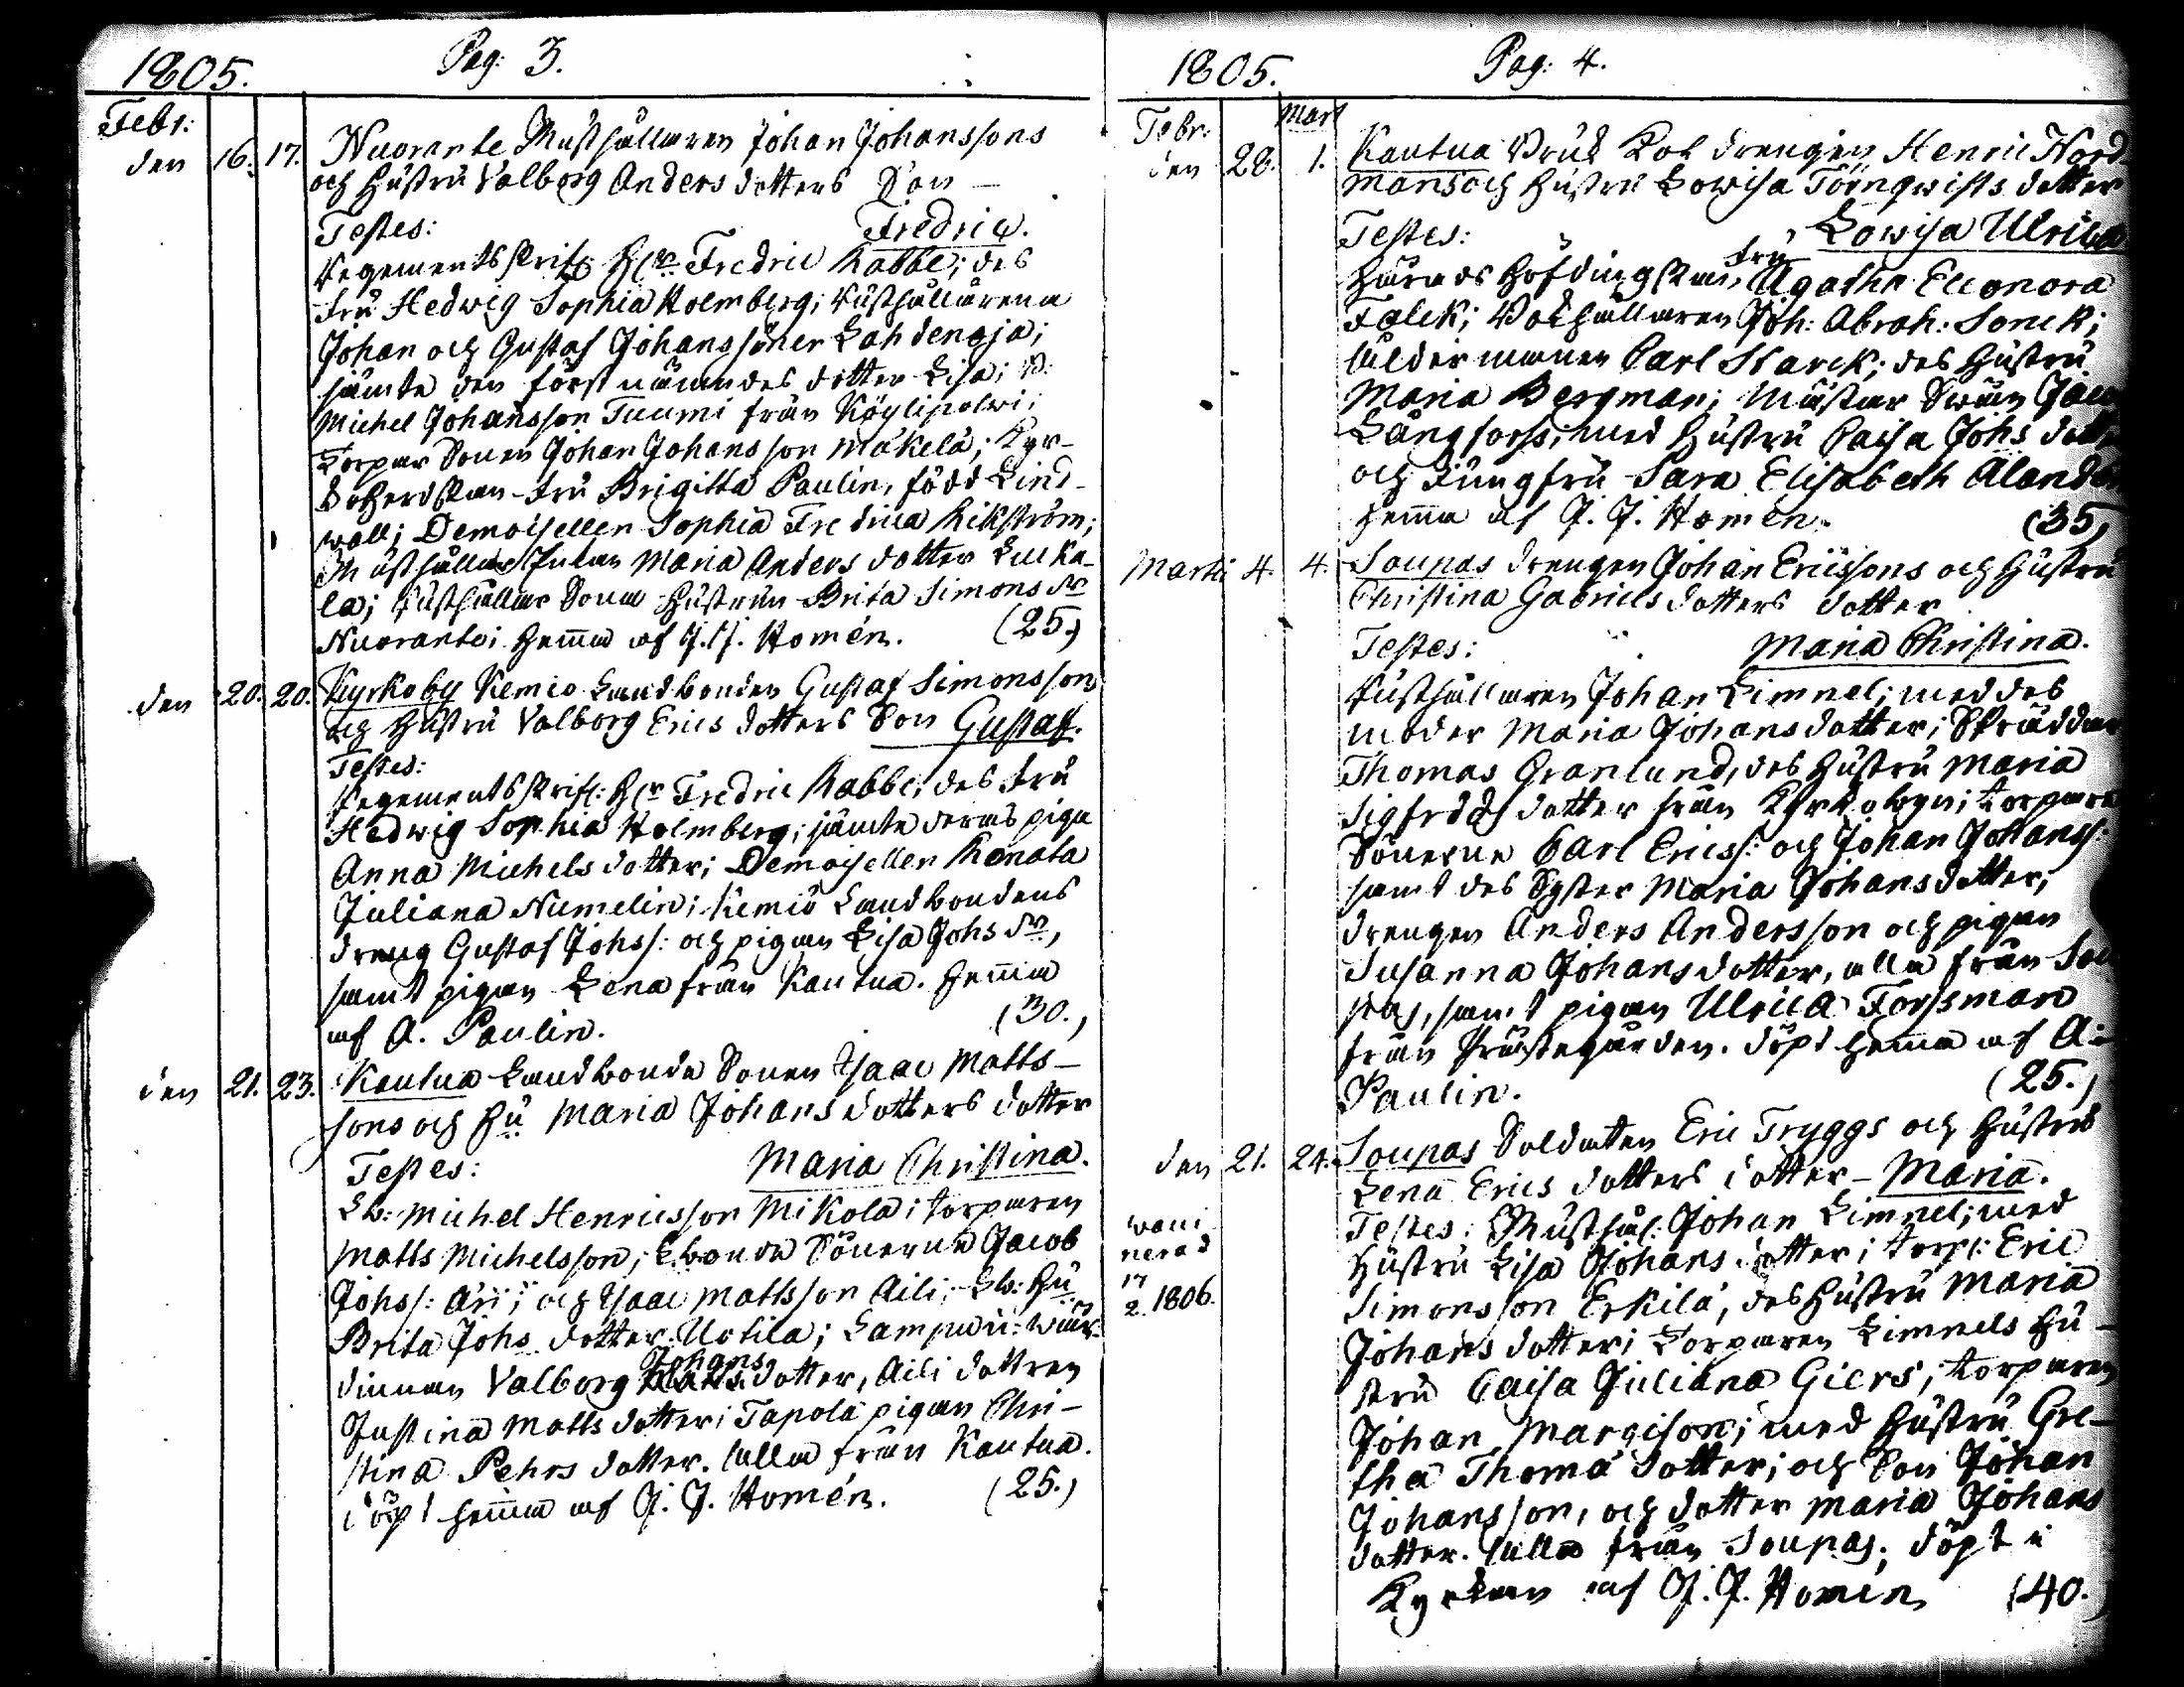 1805. Pag: 3.
Febr:
den 16. 17. Nuorante Rusthållaren Johan Johanssons
och Hustru Valborg Anders dotters Son –
Testes: Fredric.
Regements skrif: H:r Fredric Rabbe; des
fru Hedwig Sophia Holmberg; Rusthållarena
Johan och Gustaf Johanssöner Lahdenoja;
jämte den först nämndes dotter Lisa;
Michel Johansson Tuumi från Köylipolwi;
Torpar Sonen Johan Johansson Mäkelä; Kyr-
koherdskan fru Brigitta Paulin, född Lind-
wall; Demoisellen Sophia Fredrica Rikström;
Rusthållar Enkan Maria Anders dotter Luuka-
la; Rusthållar Sona Hustrun Brita Simons d:r
Nuorante; hemma af J. J. Homén. (25.)
den 20. 20. Kyrkoby Kemiö Landbonden Gustaf Simonssons
och Hustru Valborg Erics dotters Son Gustaf.
Testes:
Regements skrif: H:r Fredric Rabbe, des fru
Hedwig Sophia Holmberg; jämte deras piga
Anna Michels dotter; Demoisellen Renata
Juliana Numelin; Kemiö Landbondens
dreng Gustaf Johss: och pigan Lisa Johs d:r,
samt pigan Lena från Kautua. hemma
af A. Paulin. (30.)
den 21. 23. Kautua Landbonde Sonen Isaac Matts-
sons och Hu Maria Johans dotters dotter
Testes: Maria Christina.
Lb: Michel Henricsson Mikola; torparen
Matts Michelsson; Lbonde Sönerne Jacob
Johss: Äri; och Isaac Mattsson Aili; Lb: Hu
Brita Johs dotter Uotila; Lampuri: wär-
dinnan Valborg Johans dotter, Aili dottren
Justina Matts dotter; Tapola pigan Chri-
stina Pehrs dotter. alla från Kautua.
döpt hemma af J. J. Homén. (25.)
1805. Pag: 4.
Febr. Mart
den 28. 1. Kautua Bruk Kol drengen Henric Nord
mans och Hustru Lowisa Törnqwists dotter
Testes: Lowisa Ulrica
Härads Höfdingskan, fru Agatha Eleonora
Falck; Bokhållaren Joh: Abrah: Sonck;
åldermannen Carl Starck; des Hustru
Maria Bergman; Mästar Swän Jacob
Långfors; med Hustru Caisa Johs dotter
och Jungfru Sara Elisabeth Ålander
hemma af J. J. Homén. (35)
Martii 4. 4. Soupas drengen Johan Ericssons och Hustru
Christina Gabriels dotters dotter
Testes: Maria Christina.
Rusthållaren Johan Limnel; med des
moder Maria Johans dotter; Skräddar
Thomas Granlund, des Hustru Maria
Sigfreds dotter från Kyrkobyn; torpare
Sönerne Carl Ericss: och Johan Johanss:
samt des Syster Maria Johans dotter;
drengen Anders Andersson och pigan
Susanna Johans dotter, alla från Sou
pas, samt pigan Ulrica Forssman
från Prästegården. döpt hemma af A:
Paulin. (25.)
den 21. 24. Soupas Soldaten Eric Tryggs och Hustrus
Lena Erics dotters dotter – Maria.
Testes: Rusthål: Johan Limnel; med
Hustru Lisa Johans dotter; torp: Eric
Simonsson Erkilä, des Hustru Maria
Johans dotter; Torparen Limnels Hu-
stru Caisa Juliana Giers; torparen
Johan Margison; med Hustru Gre-
tha Thomä dotter; och Son Johan
Johansson, och dotter Maria Johans
dotter. alla från Soupas. döpt i
Kyrkan af J. J. Homén (40.)
waci
nerad
17
2. 1806.